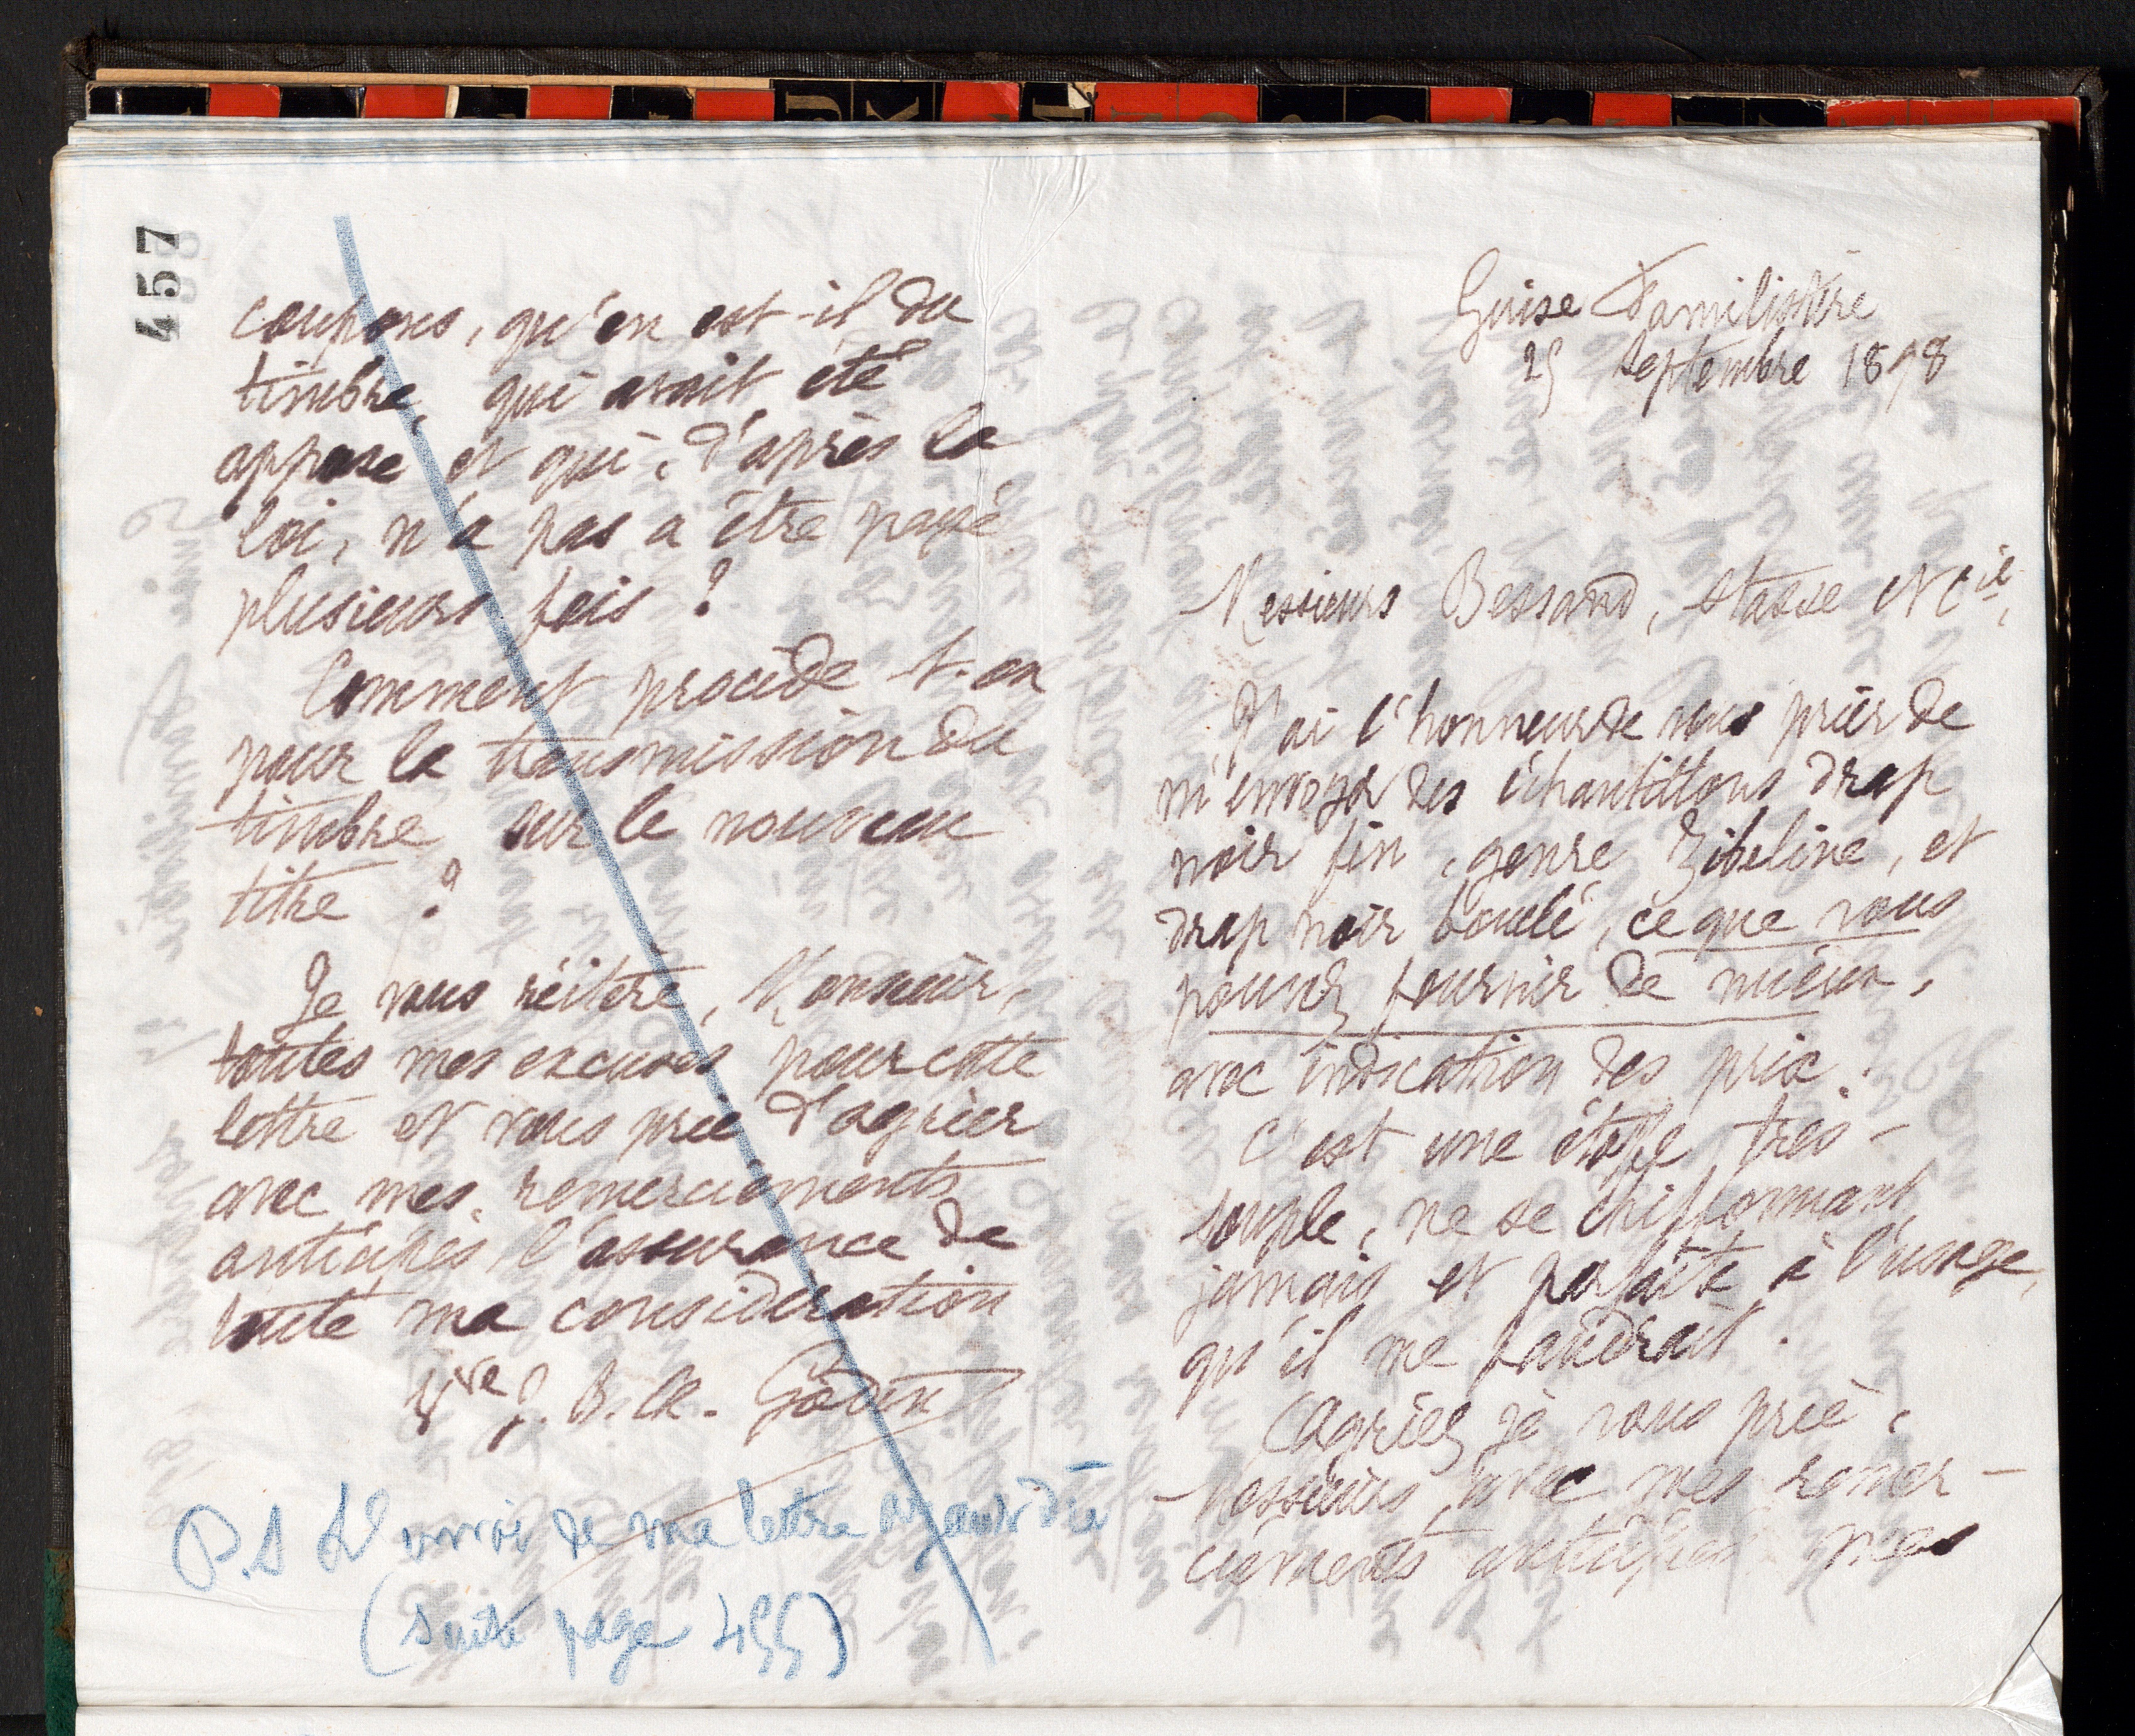 457
coupons, qu'en est-il du
timbre, qui avait été
apposé et qui, d'après la
loi, n'a pas à être payé
plusieurs fois ?
Comment procède t-on
pour la transmission du
timbre sur le nouveau
titre ?
Je vous réitère, Monsieur,
toutes mes excuses pour cette
lettre et vous prie d'agréer
avec mes remerciements
anticipés l'assurance de
toute ma considération
Vve J. B. A. Godin
P.S L'envoi de ma lettre
(suite page 455)
Guise Familistère
25 septembre 1898
Messieurs Bessand, Stasse et Cie,
J'ai l'honneur de vous prier de
m'envoyer des échantillons drap
noir fin, genre Zibeline, et
drap noir bouclé, ce que vous
pouvez fournir de mieux,
avec indication des prix.
C'est une étoffe très-
souple, ne se chiffonnant
jamais et parfaite à l'usage,
qu'il me faudrait.
Agréez je vous prie,
Messieurs, avec mes remer-
ciements anticipés mes
J
K
M